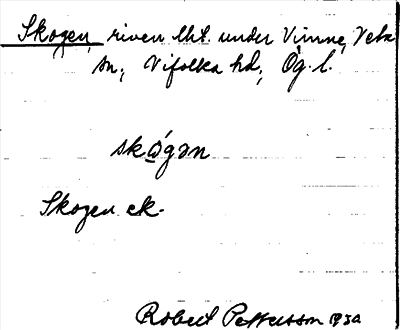 Skogen, riven lht. under Vinne, Veta
sn, Vifolka hd, Ög. l.
skógən
Skogen ek.
Robert Pettersson 1930